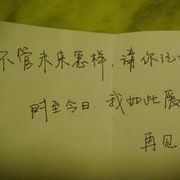 不管未来怎样，请你记
时至今日，我如此爱
再见